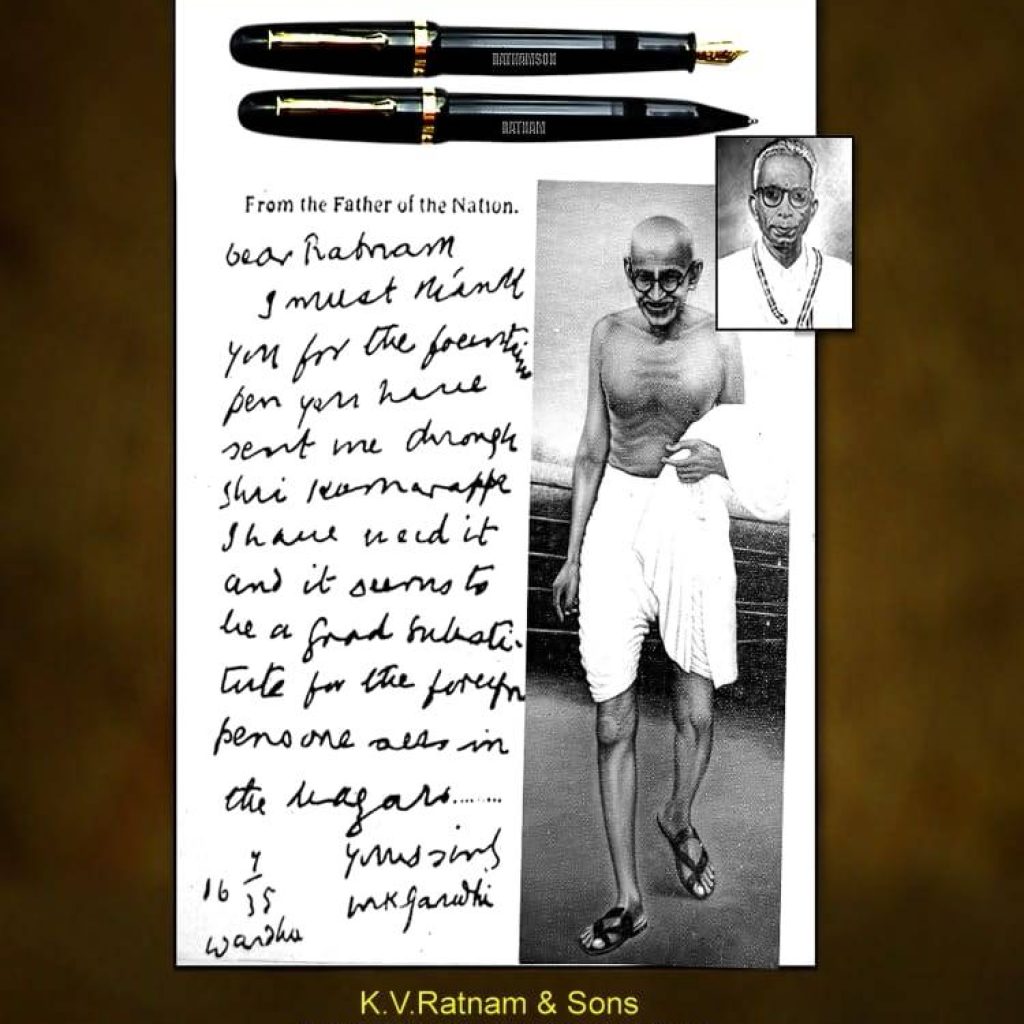 RATNAMSON
RATNAM
From the Father of the Nation.
Dear Ratnam
I must thank
you for the fountain
pen you have
sent me through
Shri Kumarappa
I have used it
and it seems to
be a good substi-
tute for the foreign
pens one sees in
the bazars........
Yours sinly
MKGandhi
16 7/35
Wardha
K.V.Ratnam & Sons